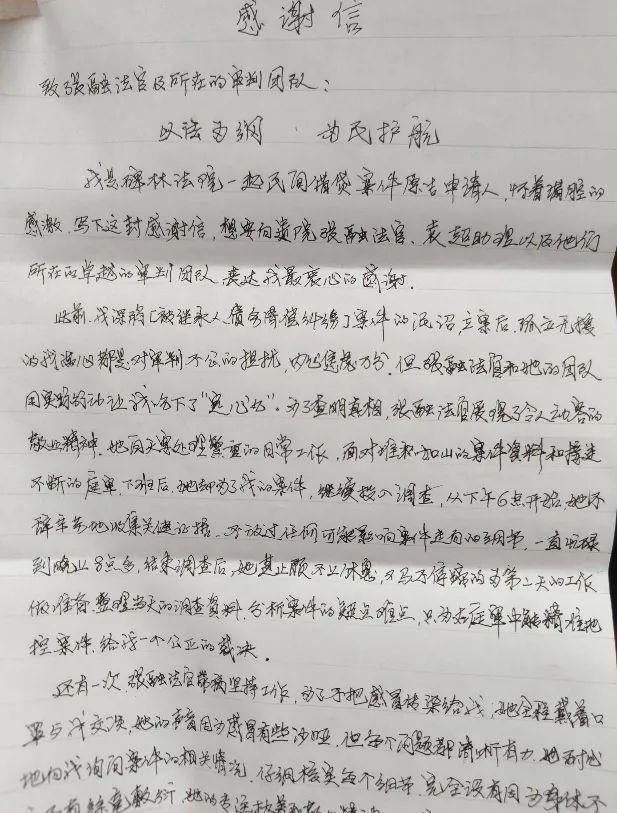 感谢信
致张融法官及所在的审判团队：
以法为纲 · 为民护航
我是碑林法院一起民间借贷案件原告申请人，怀着满腔的
感激，写下这封感谢信，想要向贵院张融法官、袁超助理以及他们
所在的卓越的审判团队，表达我最衷心的感谢。
此前，我深陷[被继承人债务清偿纠纷]案件的泥沼，立案后，孤立无援
的我满心都是对审判不公的担忧，内心焦虑万分，但张融法官和她的团队
用实际行动让我吃下了“定心丸”。为了查明真相，张融法官展现了令人动容的
敬业精神，她白天要处理繁重的日常工作，面对堆积如山的案件资料和接连
不断的庭审，下班后，她却为了我的案件，继续投入调查，从下午6点开始，她不
辞辛劳地收集关键证据，不放过任何可能影响案件走向的细节，一直忙碌
到晚上8点多，结束调查后，她甚至顾不上休息，又马不停蹄的为第二天的工作
做准备，整理当天的调查资料，分析案件的疑点难点，只为在庭审中能精准把
控案件，给我一个公正的裁决。
还有一次，张融法官带病坚持工作，为了不把感冒传染给我，她全程戴着口
罩与我交谈，她的声音因为感冒有些沙哑，但每个问题都清晰有力，她耐心
地向我询问案件的相关情况，仔细核实每个细节，完全没有因为身体不
有丝毫敷衍，她的专